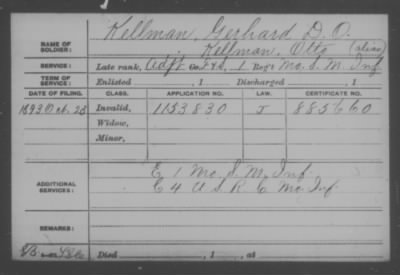 Kellman, Gerhard D. O.
NAME OF SOLDIER: Kellman, Otto (alias)
SERVICE: Late rank, Adjt Co. F&S, 1 Reg't Mo. S. M. Inf
TERM OF SERVICE: Enlisted , 1 Discharged , 1
DATE OF FILING. CLASS. APPLICATION NO. LAW. CERTIFICATE NO.
1893 Oct. 23 Invalid, 1153830 J 885660
Widow,
Minor,
ADDITIONAL SERVICES: E 1 Mo. S. M. Inf
E 4 U S R C Mo. Inf.
REMARKS:
Died , 1 , at